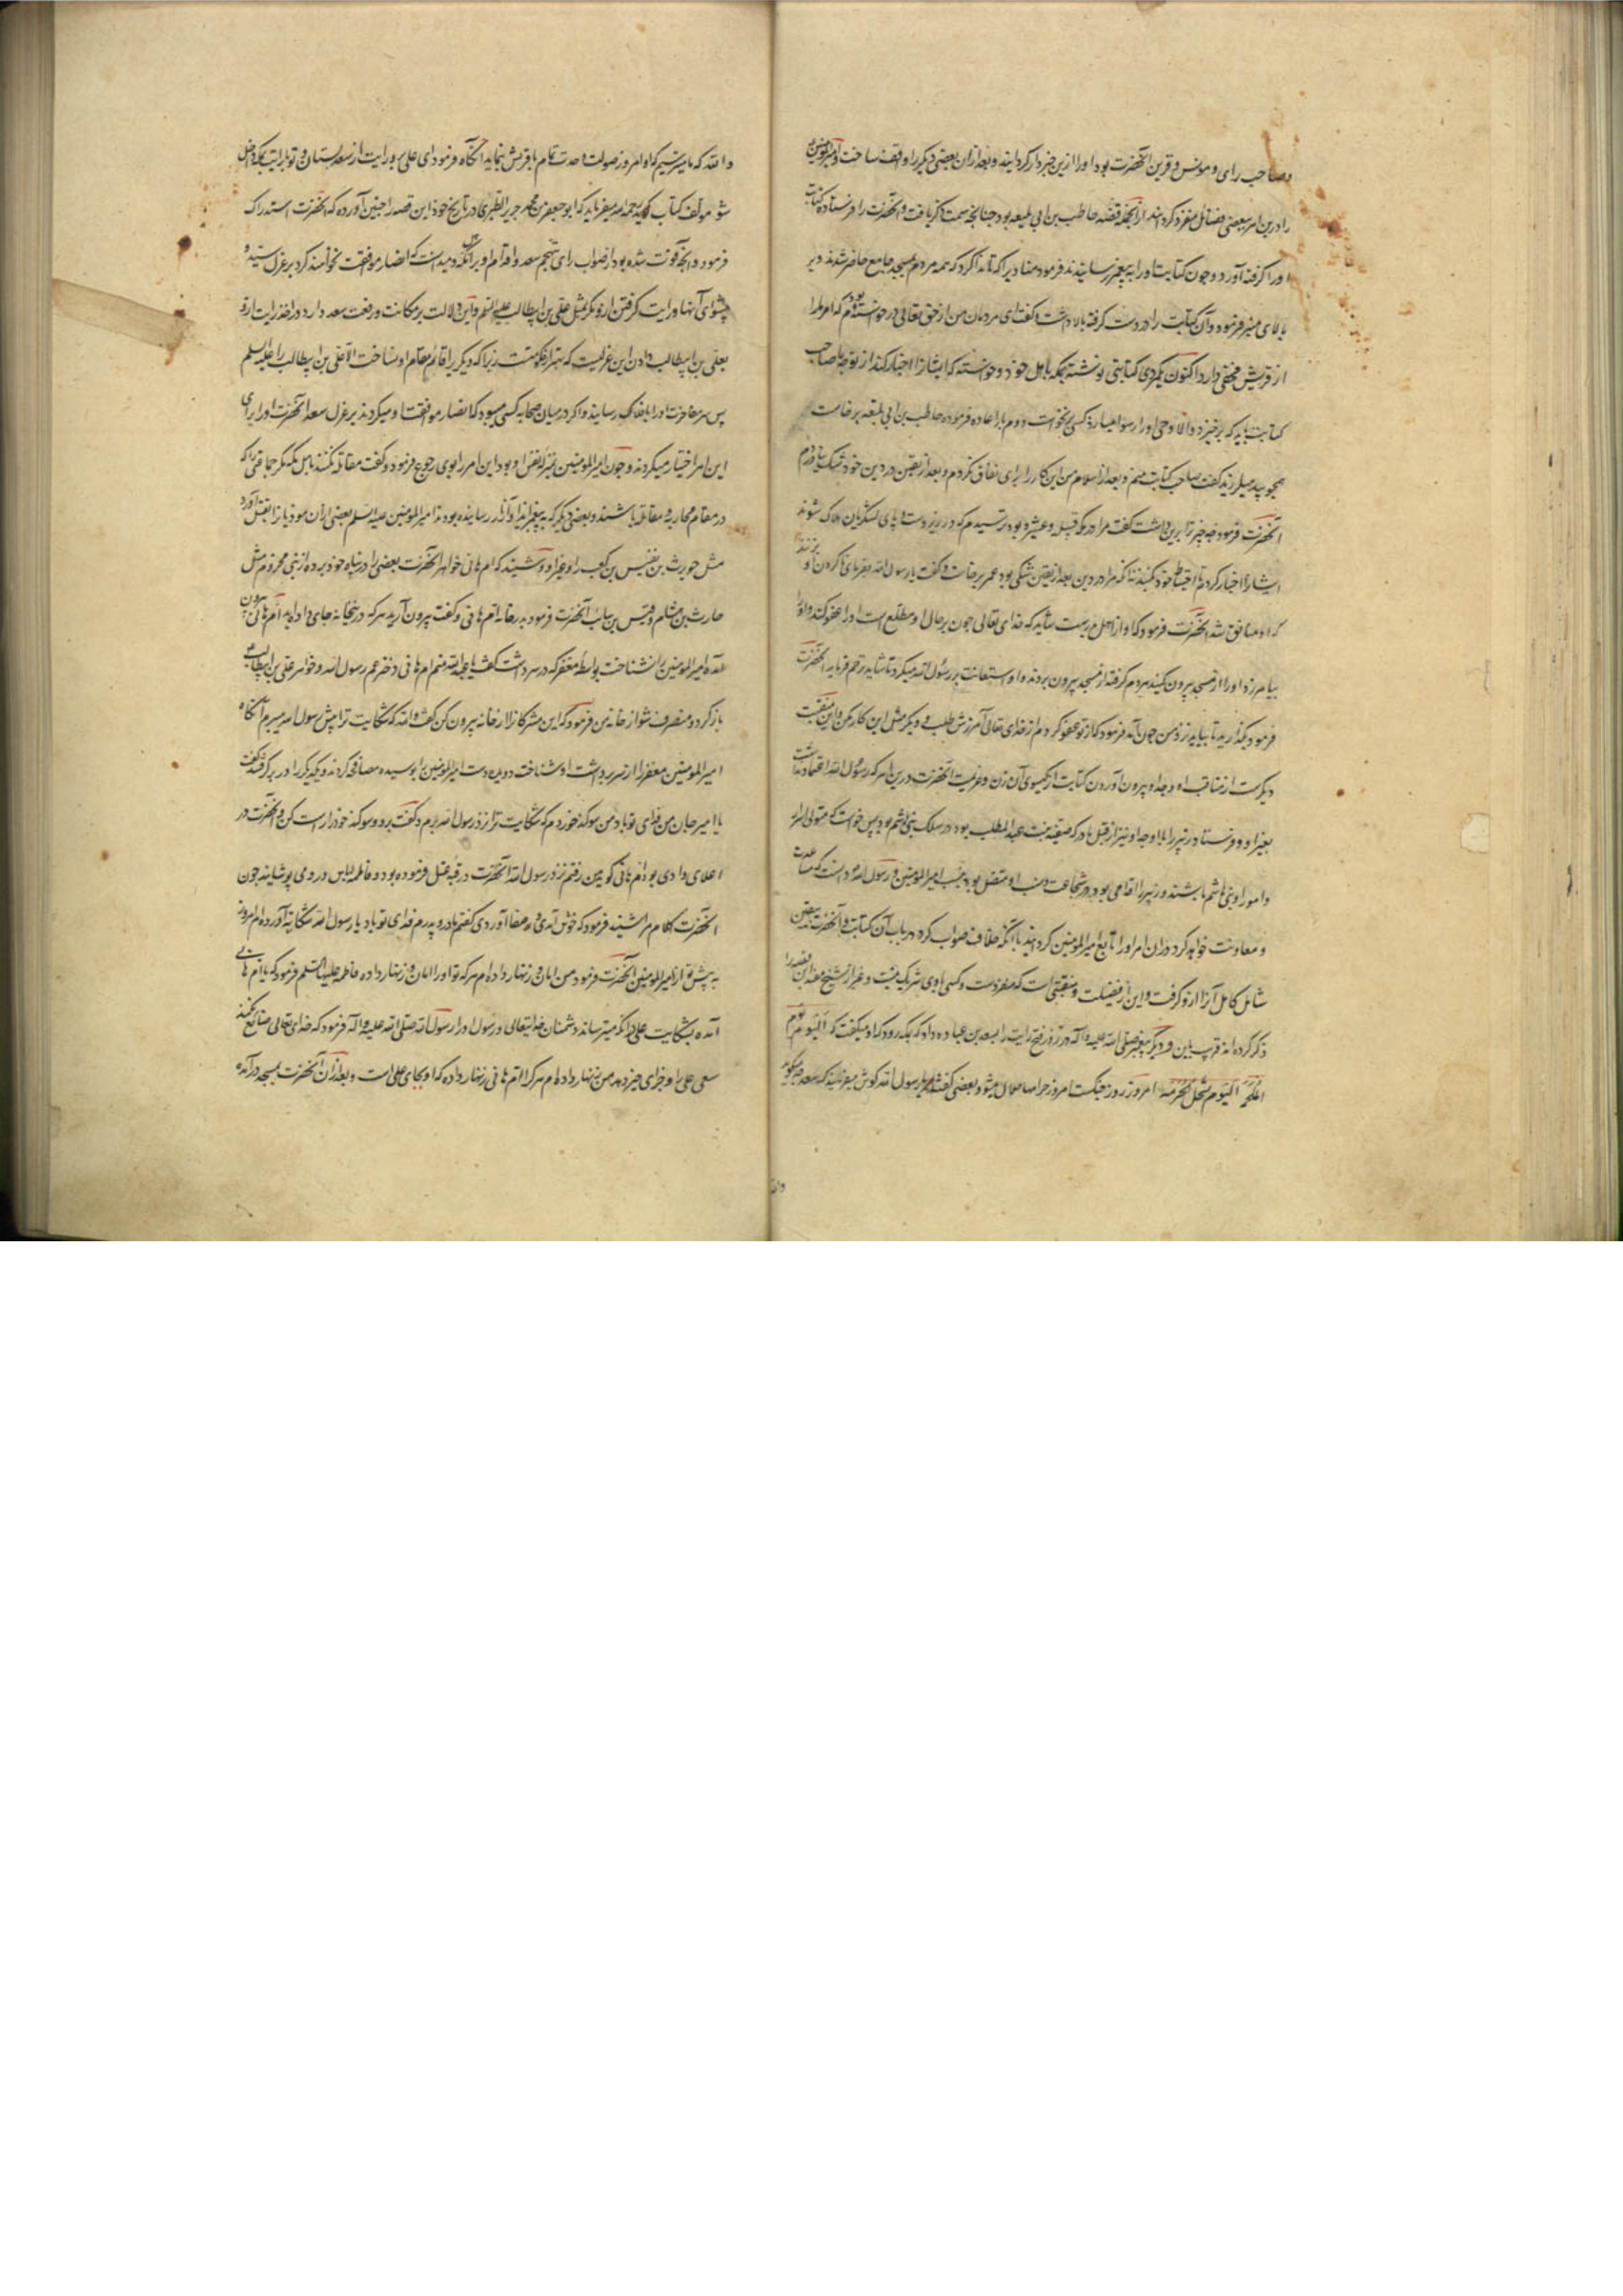 وصاحب رای و مونس و قرین آنحضرت بود او را ازین خبردار کردانید و بعد ازان بعضی دیکر را واقف ساخت و امیرالمؤمنین
را درین امر ببعضی فضائل منفرد کردانید ازآنجمله قصه حاطب بن ابی بلیعه بود چنانچه سمت ذکر یافت و آنحضرت را فرستاد کتابت
او را کرفته آورد و چون کتابت او را به پیغمبر رسانیدند فرمود منادیرا که تا ندا کرد که همه مردم بمسجد جامع حاضر شدند و بر
بالای منبر فرمود و آن کتابت را در دست کرفته بالا داشت و کفت ای مردمان من از حق تعالی درخواسته بودم که امر ما را
از قریش مخفی دارد اکنون یکمردی کتابتی نوشته بمکه باهل خود و خواسته که ایشانرا اخبار کند از توجه ما صاحب
کتابت باید که برخیزد والا وحی او را رسوا میسازد کسی برنخواست دوم بار اعاده فرموده حاطب بن ابی بلیعه برخاست
همچو بید میلرزید کفت صاحب کتابت منم و بعد از اسلام من این کار را برای نفاق نکردم و بعد از یقین در دین خود شک نیاوردم
آنحضرت فرمود چه چیز ترا برین داشت کفت مرا در مکه قبیله و عشیره بود ترسیدم که در زیر دست و پای لشکریان هلاک شوند
ایشانرا اخبار کردم تا احتیاط خود کنند نه آنکه مرا در دین بعد از یقین شکی بود عمر برخاست و کفت یا رسول الله بفرمای تا کردن او بزنند
که او منافق شد آنحضرت فرمود که او از اهل بدرست شاید که خدای تعالی چون بر حال او مطلع است او را عفو کند و او را
بیامرزد او را از مسجد بیرون کنید مردم کرفته از مسجد بیرون بردند و او استعانت بر رسول الله میکرد تا شاید رحم فرماید آنحضرت
فرمود بکذارید تا بیاید نزد من چون آمد فرمود که از تو عفو کردم از خدای تعالی آمرزش طلب و دیکر مثل این کار مکن و این منقبت
دیکرست از مناقب او و جدا و بیرون آوردن کتابت از کیسوی آن زن و عزیمت آنحضرت درین امر که رسول الله اعتماد نداشت
بغیر او و فرستادن زبیر را با او چه او نیز از قبل مادر که صفیه بنت عبدالمطلب بود در سلک بنی هاشم بود پس خواست که متولی سر
و امور او بنی هاشم باشند و زبیر را اقدامی بود در شجاعت و نسب او متصل بود بنسب امیرالمؤمنین و رسول الله دانست که مساعدت
و معاونت خواهد کرد دران امر او را تابع امیرالمؤمنین کردانید با آنکه خلاف صواب کرد در باب آن کتابت و آنحضرت یقین
شامل کامل آنرا ازو کرفت و این از فضیلت و منقبتی است که منفردست و کسی با وی شریک نیست و غیر از شیخ مفید این قصه را
ذکر کرده اند قرب باین و دیکر پیغمبر صلی الله علیه و آله در روز فتح رایت را بسعد بن عباده داد که بمکه رود که او میکفت که اَلیَومُ یَومُ
المَلحَمَه اَلیَومَ تُستَحَلُّ الحُرمَه امروز روز جنکست امروز حرامها حلال میشود بعضی کفتند یا رسول الله کوش میفرمایید که سعد چه میکوید
والله
والله که ما میترسیم که او امروز صولت و حدت تمام با قریش بنماید آنکاه فرمود ای علی برو رایت از سعد بستان و تو با رایت بمکه داخل
شو مولف کتاب کوید رحمه الله میفرماید که ابو جعفر بن محمد جریر الطبری در تاریخ خود این قصه را چنین آورده که آنحضرت استدراک
فرمود و آنچه فوت شده بود از صواب رای تهجم سعد و اقدام او بر آنکه و میدانست که انصار موافقت نخواهند کرد بر عزل سید و
پیشوای آنها و رایت کرفتن ازو مکر مثل علی بن ابیطالب علیه السلم و این دلالت بر مکانت و رفعت سعد دارد و اخذ رایت ازو
بعلی بن ابیطالب دادن این عزلیست که بهتر از حکومتست زیرا که دیکریرا قائم مقام او نساخت الا علی بن ابیطالب را علیه السلم
پس سر مفاخرت او را بافلاک رسانید و اکر در میان صحابه کسی میبود که انصار موافقت او میکردند بر عزل سعد آنحضرت او را برای
این امر اختیار میکردند و چون امیرالمؤمنین بمنزله نفس او بود این امر را بوی رجوع فرمود و کفت مقاتله نکنند باهل مکه مکر جماعتی را که
در مقام محاربه و مقاتله باشند و بعضی دیکر که به پیغمبر ایذا و آزار رسانیده بودند امیرالمؤمنین علیه السلم بعضی ازان موذیانرا بقتل آورد
مثل حویرث بن نفیس بن کعب را و غیر او و شنیدند که ام هانی خواهر آنحضرت بعضی را در پناه خود برده از بنی مخزوم مثل
حارث بن هشام و قیس بن سایب آنحضرت فرمود به در خانه ام هانی و کفت بیرون آرید هر که در پنجا نه جای داده اید ام هانی بیرون
آمده امیرالمؤمنین را نشناخت بواسطه مغفر که در سر داشت کفت یا عبدالله منم ام هانی و دختر عم رسول الله و خواهر علی بن ابیطالب
بازکرد و منصرف شو از خانه من فرمود که این مشرکانرا از خانه بیرون کن کفت والله که شکایت ترا پیش رسول الله میبرم آنکاه
امیرالمؤمنین مغفر را از سر برداشت او شناخت دوید و دست امیرالمؤمنین را بوسیده مصافحه کردند و یکدیکر را در بر کرفتند و کفت
یا امیر جان من فدای تو باد من سوکند خوردم که شکایت ترا نزد رسول الله برم و کفت برو و سوکند خود راست کن و آنحضرت در
اعلای وادی بود ام هانی کوید من رفتم نزد رسول الله آنحضرت در قبه غسل فرموده بود و فاطمه لباس در وی پوشانید چون
آنحضرت کلام مرا شنید فرمود که خوش آمدی و صفا آوردی کفتم مادر و پدرم فدای تو باد یا رسول الله شکایه آورده ام امروز
به پیش تو از امیرالمؤمنین آنحضرت فرمود من امان و زنهار داده ام هر که تو او را امان و زنهار داده فاطمه علیها السلم فرمود که یا ام هانی
آمده بشکایت علی که میترساند دشمنان خدایتعالی و رسول او را رسول الله صلی الله علیه و آله فرمود که خدای تعالی ضایع نکند
سعی علی را و جزای خیر دهد من زنهار داده ام هر که را ام هانی زنهار داده که او بجای علی است و بعد ازان آنحضرت بمسجد درآمده